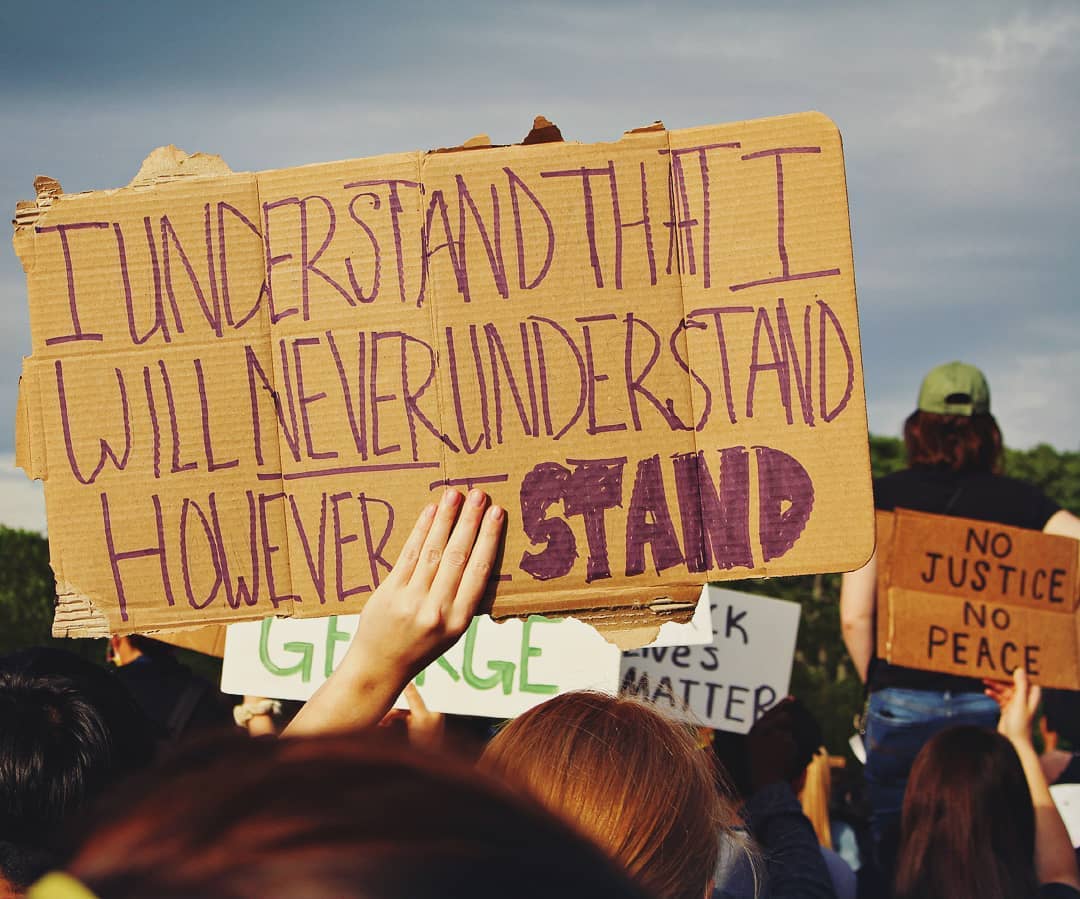 I UNDERSTAND THAT I
WILL NEVER UNDERSTAND
HOWEVER I STAND
GEORGE
LIVES
MATTER
NO
JUSTICE
NO
PEACE